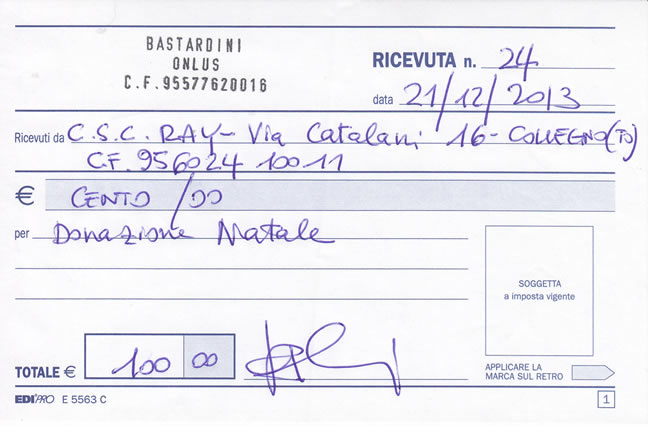 BASTARDINI
ONLUS
C.F. 95577620016
RICEVUTA n. 24
data 21/12/2013
Ricevuti da C.S.C. RAY - Via Catalani 16 - COLLEGNO (TO)
C.F. 95602410011
€ CENTO/00
per Donazione Natale
SOGGETTA
a imposta vigente
TOTALE € 100 00
APPLICARE LA
MARCA SUL RETRO
EDIPRO E 5563 C
1